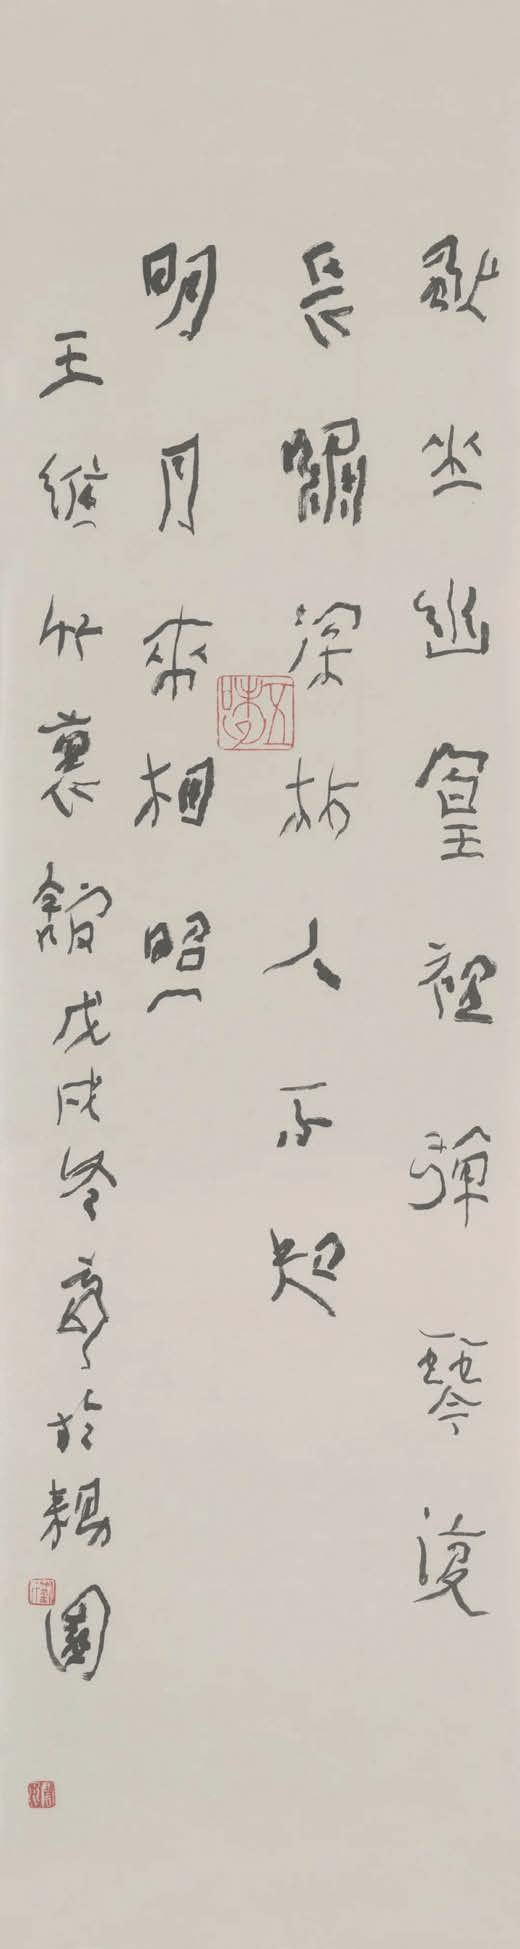 獨坐幽篁裡彈琴復
長嘯深林人不知
明月來相照
王維竹裏館戊戌冬於園